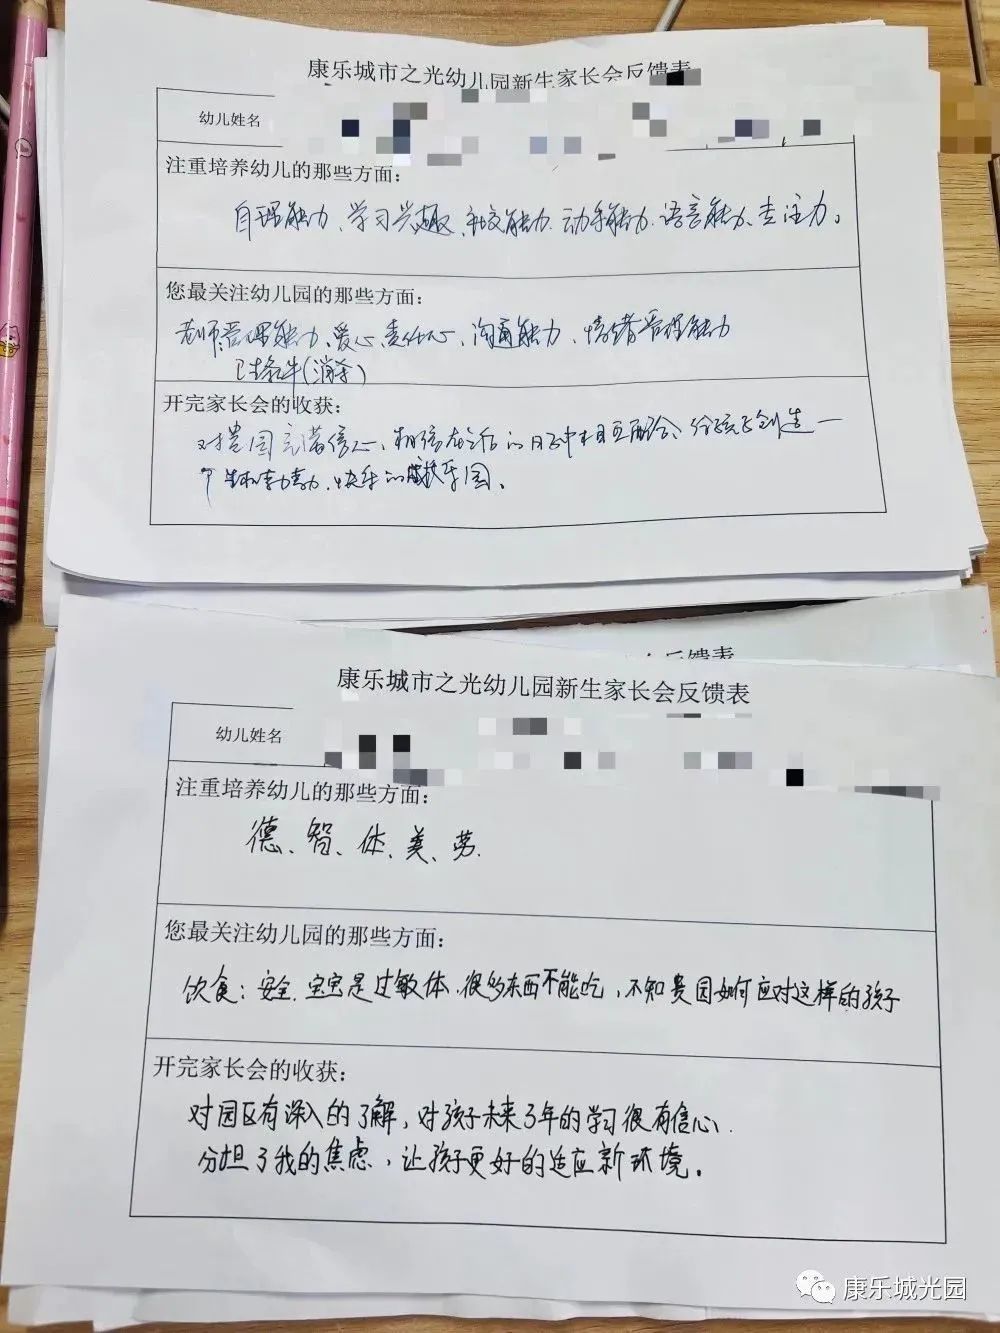 康乐城市之光幼儿园新生家长会反馈表
幼儿姓名
注重培养幼儿的那些方面：
自理能力、学习兴趣、社交能力、动手能力、语言能力、专注力。
您最关注幼儿园的那些方面：
老师管理能力、爱心、责任心、沟通能力、情绪管理能力
卫生条件(消杀)
开完家长会的收获：
对贵园充满信心，相信在之后的日子中相互配合、给孩子创造一
个 快乐的 乐园。
会反馈表
康乐城市之光幼儿园新生家长会反馈表
幼儿姓名
注重培养幼儿的那些方面：
德、智、体、美、劳.
您最关注幼儿园的那些方面：
饮食；安全.宝宝是过敏体.很多东西不能吃，不知贵园如何应对这样的孩子
开完家长会的收获：
对园区有深入的了解，对孩子未来3年的学习很有信心.
分担了我的焦虑，让孩子更好的适应新环境。
康乐城光园